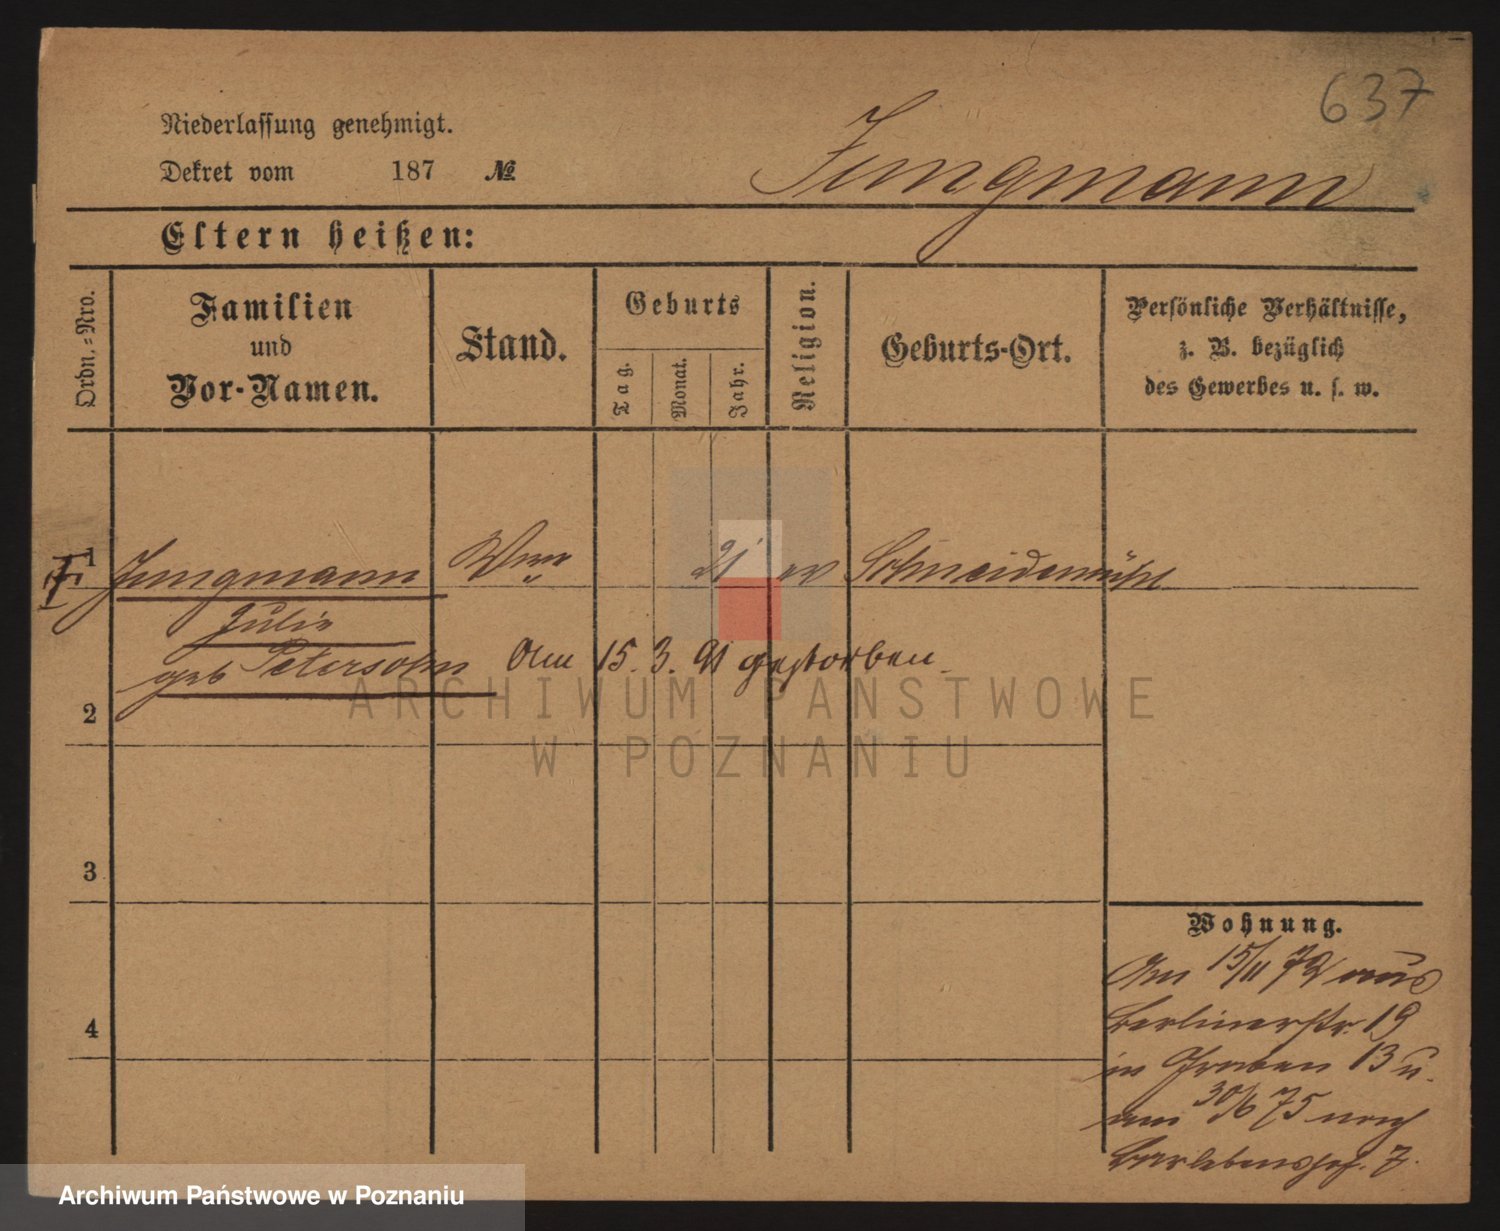 637
Niederlassung genehmigt.
Dekret vom 187 №
Jungmann
Eltern heißen:
Ordn.=Nro.
Familien
und
Vor-Namen.
Stand.
Geburts
Tag.
Monat.
Jahr.
Religion.
Geburts-Ort.
Persönliche Verhältnisse,
z. B. bezüglich
des Gewerbes u. s. w.
1 Jungmann Wwe 21 ev Schneidemühl
Julie
geb Petersohn Am 15. 3. 91 gestorben
2
ARCHIWUM PAŃSTWOWE
W POZNANIU
3
4
Wohnung.
Am 15/11 72 aus
Berlinerstr. 19
in Graben 13 u.
am 30/6 75 nach
7.
Archiwum Państwowe w Poznaniu